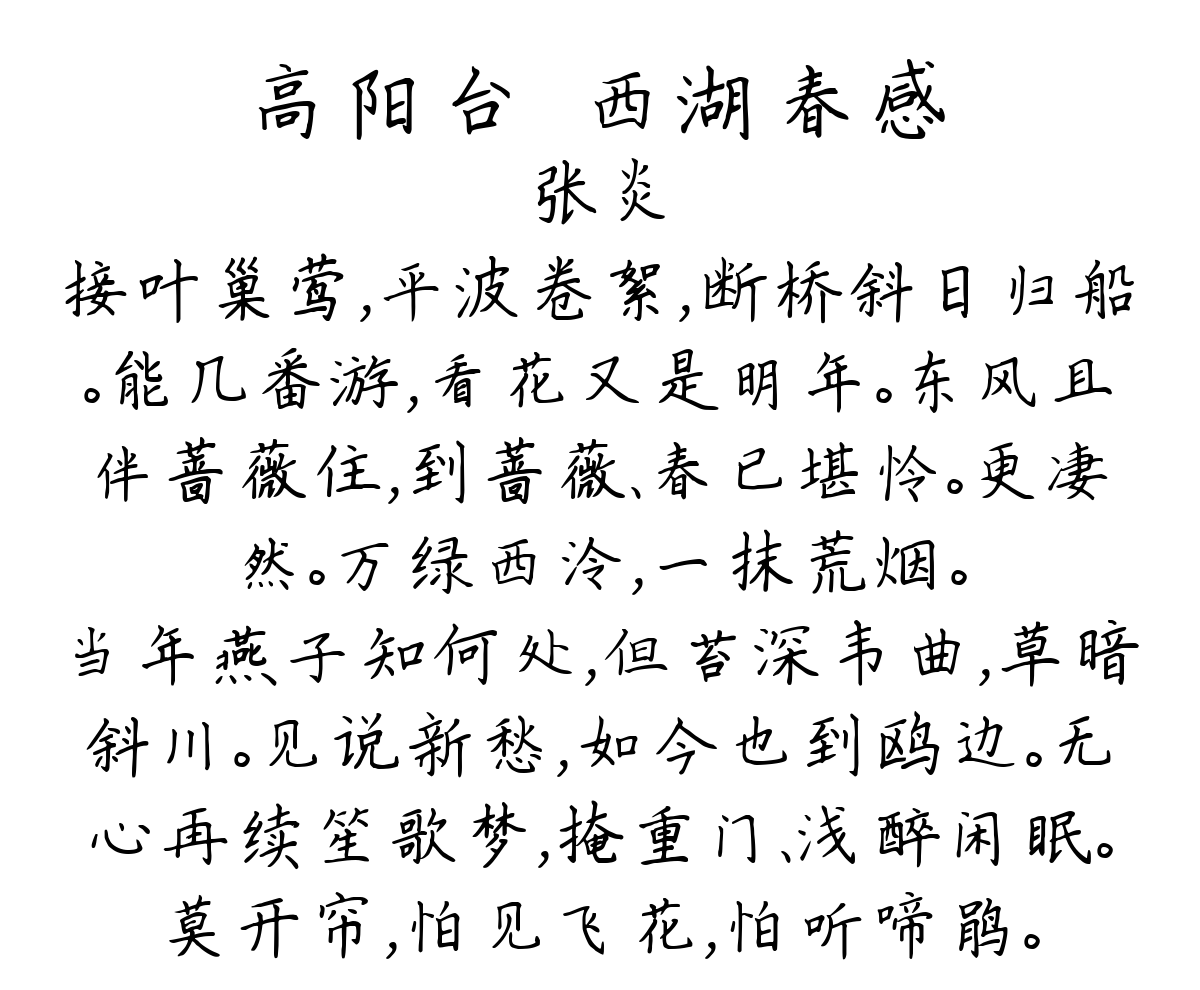 高阳台 西湖春感
张炎
接叶巢莺,平波卷絮,断桥斜日归船
。能几番游,看花又是明年。东风且
伴蔷薇住,到蔷薇、春已堪怜。更凄
然。万绿西泠,一抹荒烟。
当年燕子知何处,但苔深韦曲,草暗
斜川。见说新愁,如今也到鸥边。无
心再续笙歌梦,掩重门、浅醉闲眠。
莫开帘,怕见飞花,怕听啼鹃。